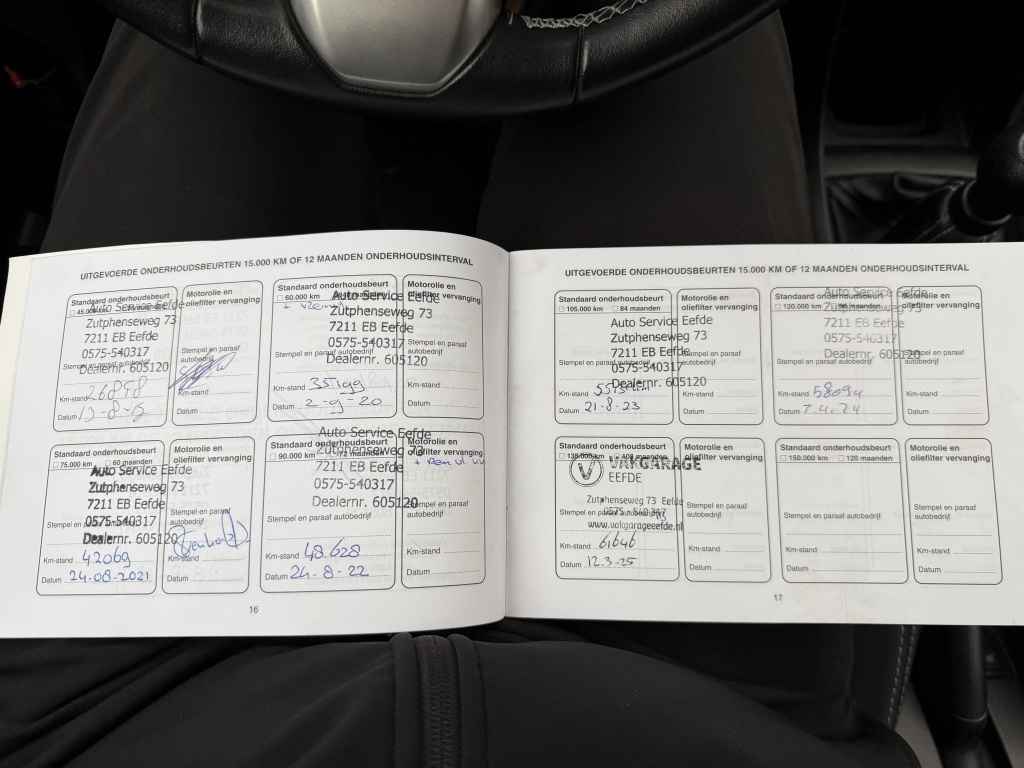 UITGEVOERDE ONDERHOUDSBEURTEN 15.000 KM OF 12 MAANDEN ONDERHOUDSINTERVAL
Standaard onderhoudsbeurt
☐ 45.000 km
Auto Service Eefde
Zutphenseweg 73
7211 EB Eefde
0575-540317
Dealernr. 605120
Km-stand
Datum
Motorolie en
oliefilter vervanging
Stempel en paraaf
autobedrijf
Km-stand
Datum
Standaard onderhoudsbeurt
☐ 60.000 km
Auto Service Eefde
Zutphenseweg 73
7211 EB Eefde
0575-540317
Stempel en paraaf autobedrijf
Dealernr. 605120
Km-stand 35199
Datum 2-9-20
Motorolie en
oliefilter vervanging
Stempel en paraaf
autobedrijf
Km-stand
Datum
Standaard onderhoudsbeurt
☐ 75.000 km ☐ 60 maanden
Auto Service Eefde
Zutphenseweg 73
7211 EB Eefde
0575-540317
Stempel en paraaf autobedrijf
Dealernr. 605120
Km-stand 42069
Datum 24-08-2021
Motorolie en
oliefilter vervanging
Stempel en paraaf
autobedrijf
Km-stand
Datum
Standaard onderhoudsbeurt
☐ 90.000 km ☐ 72 maanden
Auto Service Eefde
Zutphenseweg 73
7211 EB Eefde
0575-540317
Stempel en paraaf autobedrijf
Dealernr. 605120
Km-stand 48.628
Datum 24-8-22
Motorolie en
oliefilter vervanging
Stempel en paraaf
autobedrijf
Km-stand
Datum
16
UITGEVOERDE ONDERHOUDSBEURTEN 15.000 KM OF 12 MAANDEN ONDERHOUDSINTERVAL
Standaard onderhoudsbeurt
☐ 105.000 km ☐ 84 maanden
Auto Service Eefde
Zutphenseweg 73
7211 EB Eefde
Stempel en paraaf autobedrijf
0575-540317
Dealernr. 605120
Km-stand
Datum 21-8-23
Motorolie en
oliefilter vervanging
Stempel en paraaf
autobedrijf
Km-stand
Datum
Standaard onderhoudsbeurt
☐ 120.000 km ☐ 96 maanden
Auto Service Eefde
Zutphenseweg 73
7211 EB Eefde
0575-540317
Stempel en paraaf autobedrijf
Dealernr. 605120
Km-stand 58094
Datum 2.4.24
Motorolie en
oliefilter vervanging
Stempel en paraaf
autobedrijf
Km-stand
Datum
Standaard onderhoudsbeurt
☐ 135.000 km ☐ 108 maanden
VAKGARAGE
EEFDE
Zutphenseweg 73 Eefde
Stempel en paraaf autobedrijf
0575-540317
www.vakgarageeefde.nl
Km-stand 61646
Datum 12.3-25
Motorolie en
oliefilter vervanging
Stempel en paraaf
autobedrijf
Km-stand
Datum
Standaard onderhoudsbeurt
☐ 150.000 km ☐ 120 maanden
Stempel en paraaf autobedrijf
Km-stand
Datum
Motorolie en
oliefilter vervanging
Stempel en paraaf
autobedrijf
Km-stand
Datum
17